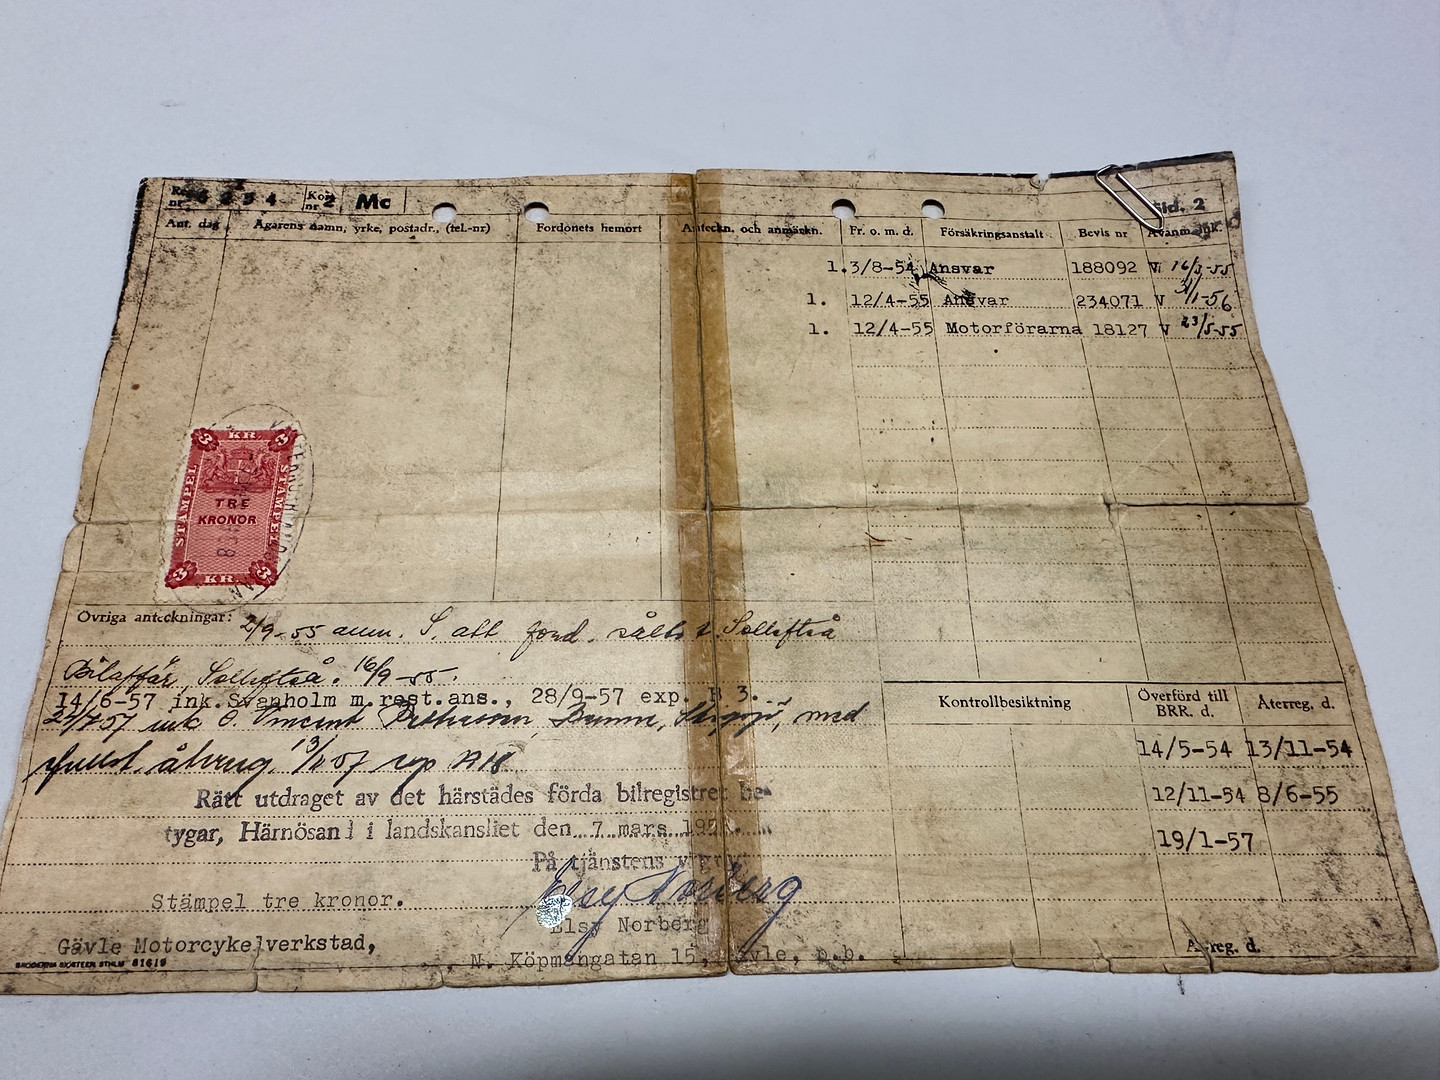 Reg. nr 254 Kon. nr 2 Mc Sid. 2
Ant. dag Ägarens namn, yrke, postadr., (tel.-nr) Fordonets hemort Anteckn. och anmärkn. Fr. o. m. d. Försäkringsanstalt Bevis nr
1. 3/8-54 Ansvar 188092 V 16/3-55
1. 12/4-55 Ansvar 234071 V 31/1-56
1. 12/4-55 Motorförarna 18127 V 23/5-55
3 KR. 3
STÄMPEL
TRE
KRONOR
STÄMPEL
3 KR. 3
Övriga anteckningar: 2/9-55 anm. S. att ford. sålts t. Sollefteå
Bilaffär, Sollefteå. 16/9-55.
14/6-57 ink. Svanholm m. rest. ans., 28/9-57 exp. B 3.
ink Vincent med
Kontrollbesiktning Överförd till BRR. d. Återreg. d.
14/5-54 13/11-54
12/11-54 8/6-55
19/1-57
Rätt utdraget av det härstädes förda bilregistret be-
tygar, Härnösand i landskansliet den 7 mars
På tjänstens vägnar
Elsy Norberg
Stämpel tre kronor.
Elsy Norberg
Gävle Motorcykelverkstad,
N. Köpmangatan 15, Gävle, p.b.
Avreg. d.
81619